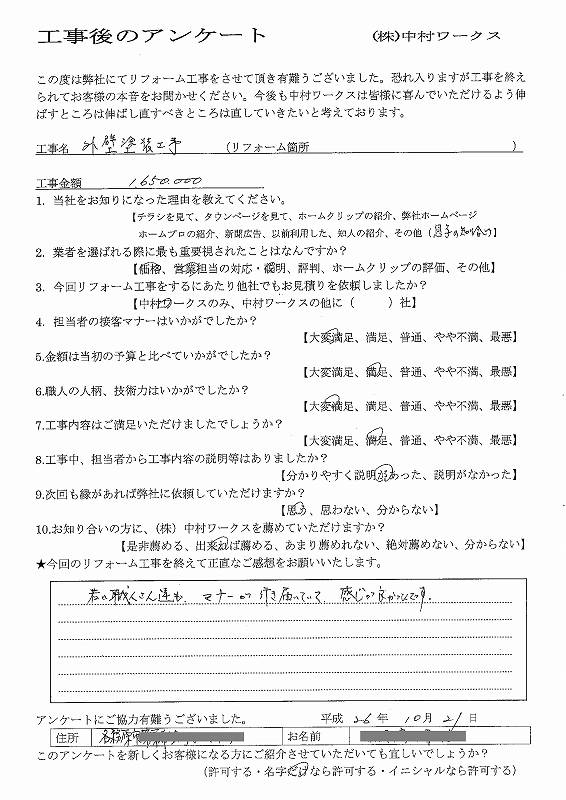 工事後のアンケート
(株)中村ワークス
この度は弊社にてリフォーム工事をさせて頂き有難うございました。恐れ入りますが工事を終え
られてお客様の本音をお聞かせください。今後も中村ワークスは皆様に喜んでいただけるよう伸
ばすところは伸ばし直すべきところは直していきたいと考えております。
工事名 外壁塗装工事 (リフォーム箇所 )
工事金額 1,650,000
1. 当社をお知りになった理由を教えてください。
【チラシを見て、タウンページを見て、ホームクリップの紹介、弊社ホームページ
ホームプロの紹介、新聞広告、以前利用した、知人の紹介、その他(息子の知り合い)
2. 業者を選ばれる際に最も重要視されたことはなんですか?
【価格、営業担当の対応・説明、評判、ホームクリップの評価、その他】
3. 今回リフォーム工事をするにあたり他社でもお見積りを依頼しましたか?
【中村ワークスのみ、中村ワークスの他に( )社】
4. 担当者の接客マナーはいかがでしたか?
【大変満足、満足、普通、やや不満、最悪】
5.金額は当初の予算と比べていかがでしたか?
【大変満足、満足、普通、やや不満、最悪】
6.職人の人柄、技術力はいかがでしたか?
【大変満足、満足、普通、やや不満、最悪】
7.工事内容はご満足いただけましたでしょうか?
【大変満足、満足、普通、やや不満、最悪】
8.工事中、担当者から工事内容の説明等はありましたか?
【分かりやすく説明があった、説明がなかった】
9.次回も縁があれば弊社に依頼していただけますか?
【思う、思わない、分からない】
10.お知り合いの方に、(株)中村ワークスを薦めていただけますか?
【是非薦める、出来れば薦める、あまり薦めれない、絶対薦めない、分からない】
★今回のリフォーム工事を終えて正直なご感想をお願いいたします。
若い職人さん達も、マナーが行き届いていて 感じが良かったです。
アンケートにご協力有難うございました。 平成 26 年 10 月 21 日
住所 お名前
このアンケートを新しくお客様になる方にご紹介させていただいても宜しいでしょうか?
(許可する・名字だけなら許可する・イニシャルなら許可する)